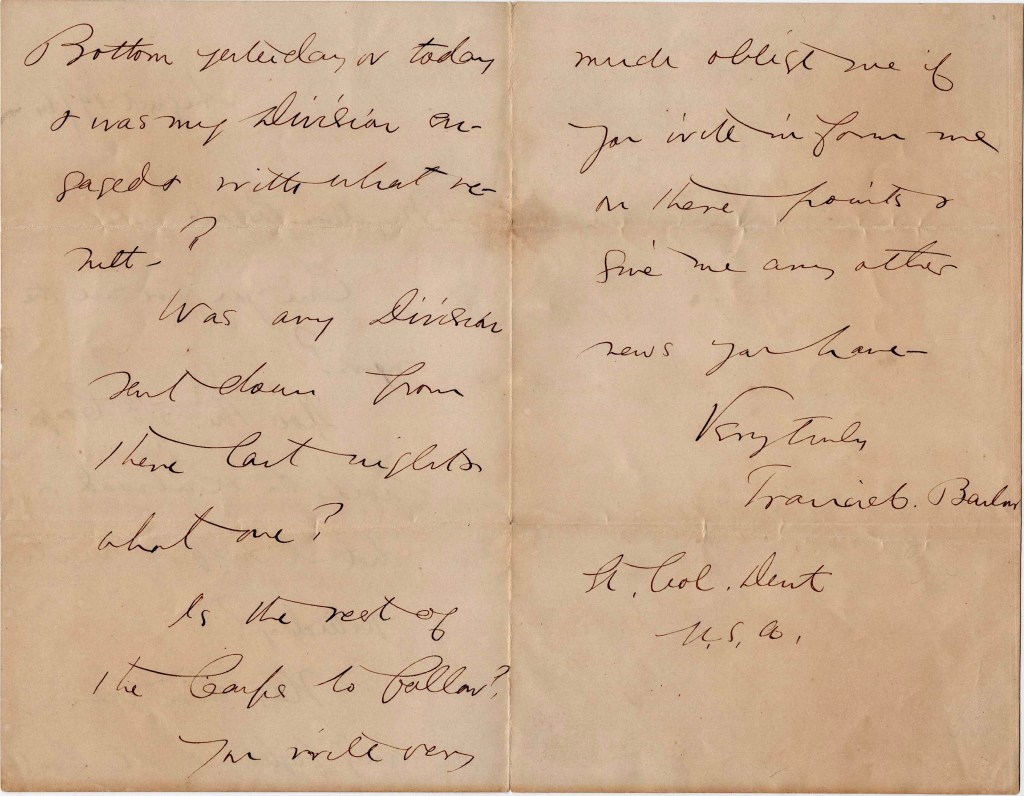 Bottom yesterday or today
& was my Division en-
gaged & with what re-
sult-?
Was any Division
sent down from
there last night &
what one?
Is the rest of
the Corps to follow?
You will very
much oblige me if
you will inform me
on these points &
give me any other
news you have-
Very truly
Francis C. Barlow
Lt. Col. Dent
U.S.A.